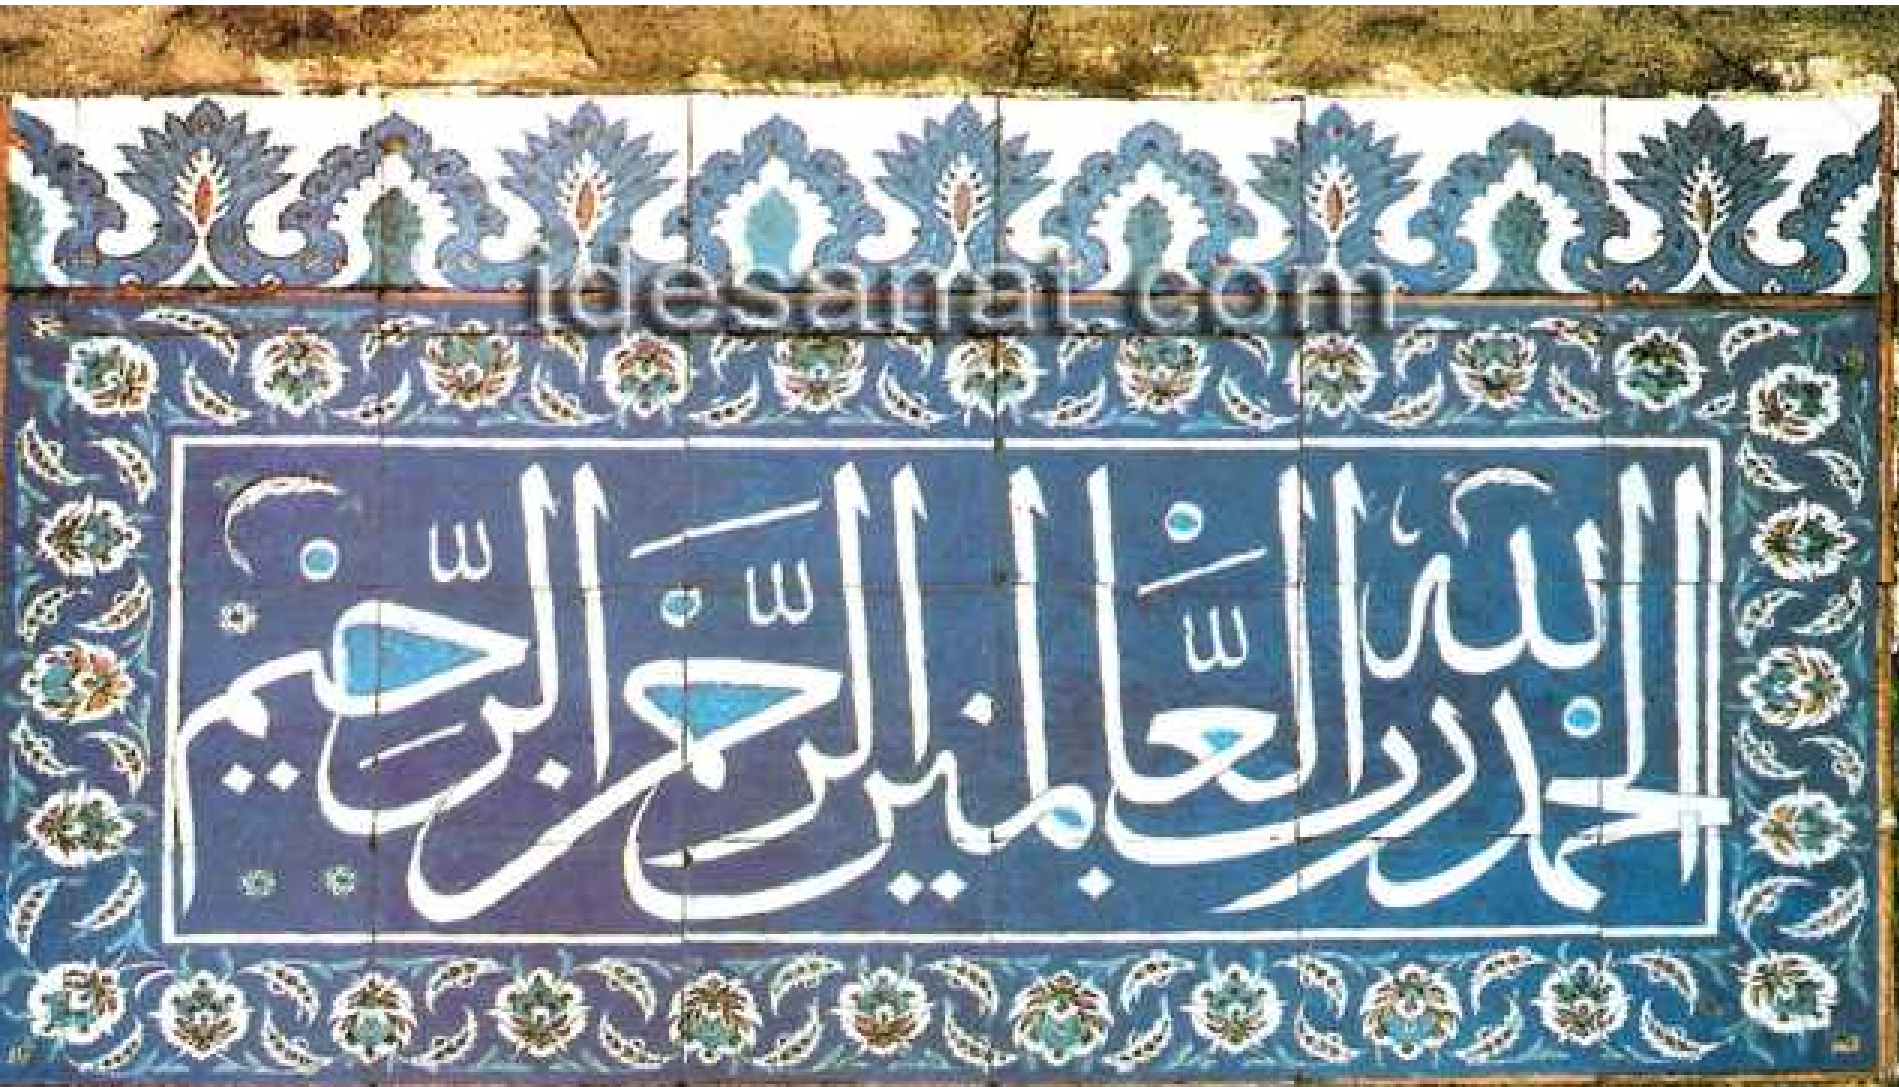 idesanat.com
الحمد لله رب العالمين الرحمن الرحيم